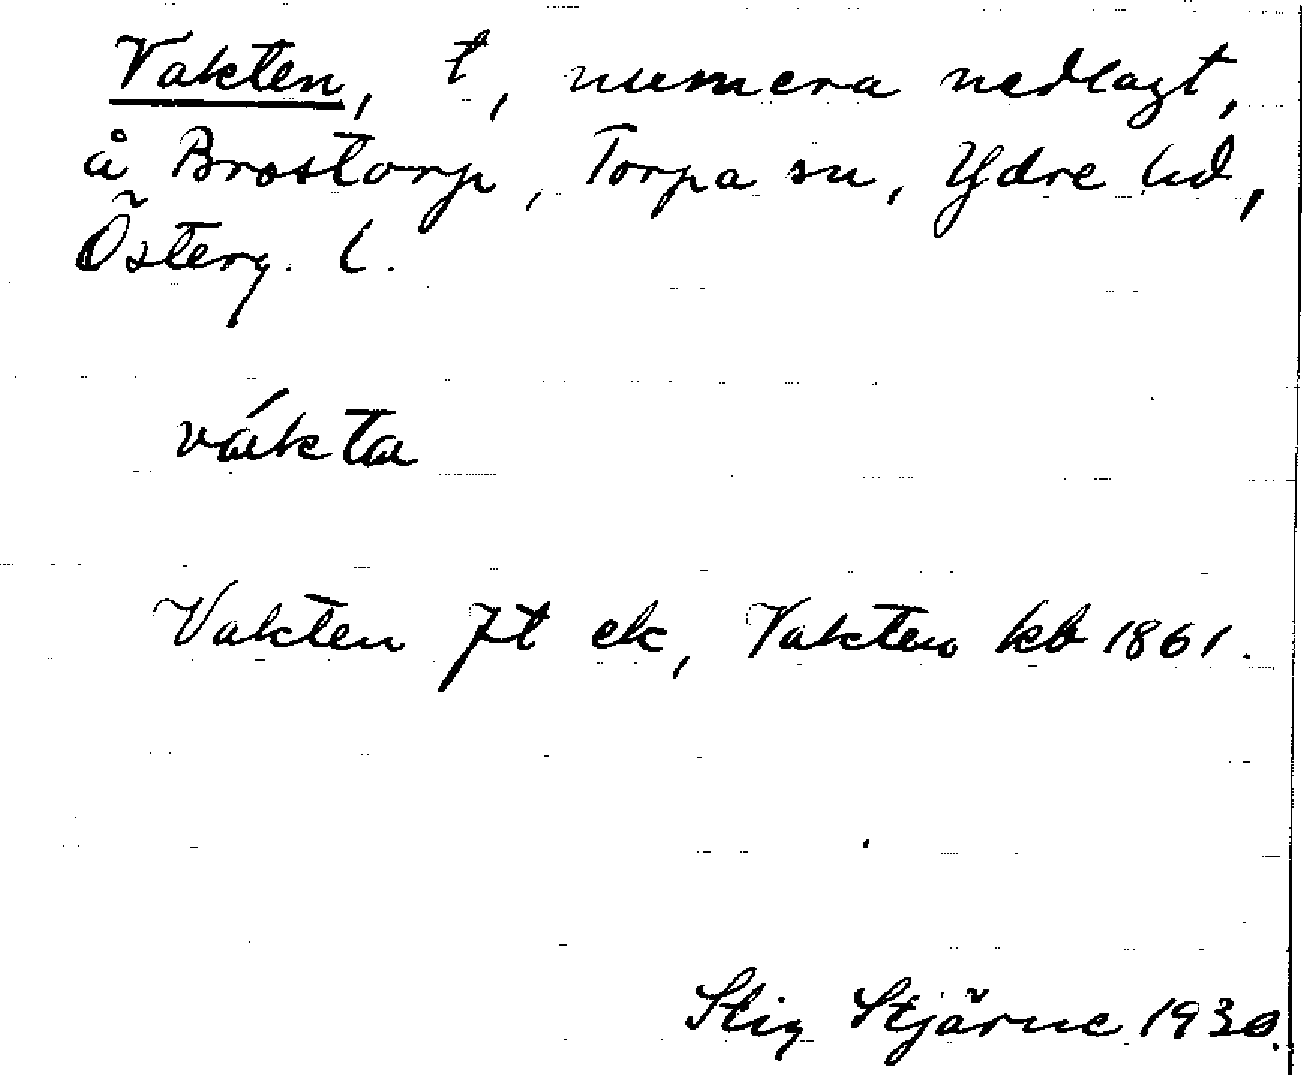 Vakten, t, numera nedlagt,
å Brostorp, Torpa sn, Ydre hd,
Österg. l.
vákta
Vakten Jt ek, Vakten kb 1861.
Stig Stjärne 1930.